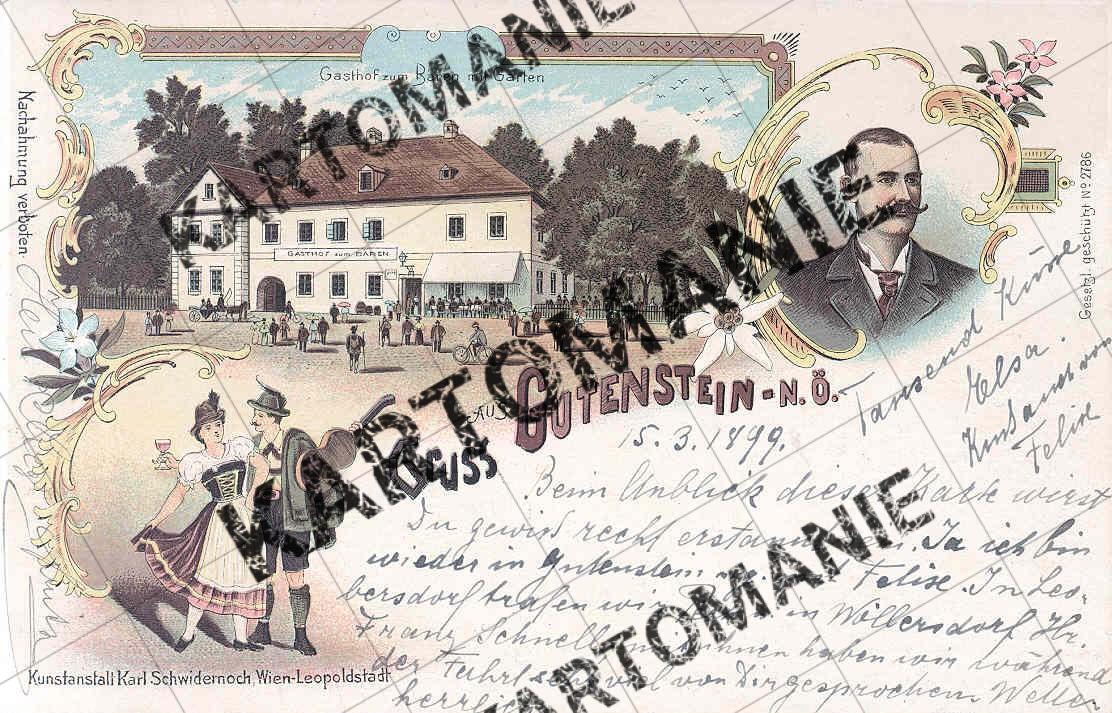 Gasthof zum Bären mit Garten
Nachahmung verboten
Gesetzl. geschützt No 2786
GASTHOF zum BÄREN
GRUSS AUS GUTENSTEIN - N. Ö.
15. 3. 1899.
Beim Anblick dieser Karte wirst
Du gewiß recht erstaunt sein. Ja ich bin
wieder in Gutenstein Felise. In Leo-
bersdorf trafen wir in Wöllersdorf Hr.
Franz Schnell haben wir während
der Fahrt sehr viel von Dir gesprochen. Wetter
herrlich
Tausend Küsse
Elsa.
von
Felise
Kunstanstalt Karl Schwidernoch, Wien-Leopoldstadt
KARTOMANIE
KARTOMANIE
KARTOMANIE
KARTOMANIE
KARTOMANIE